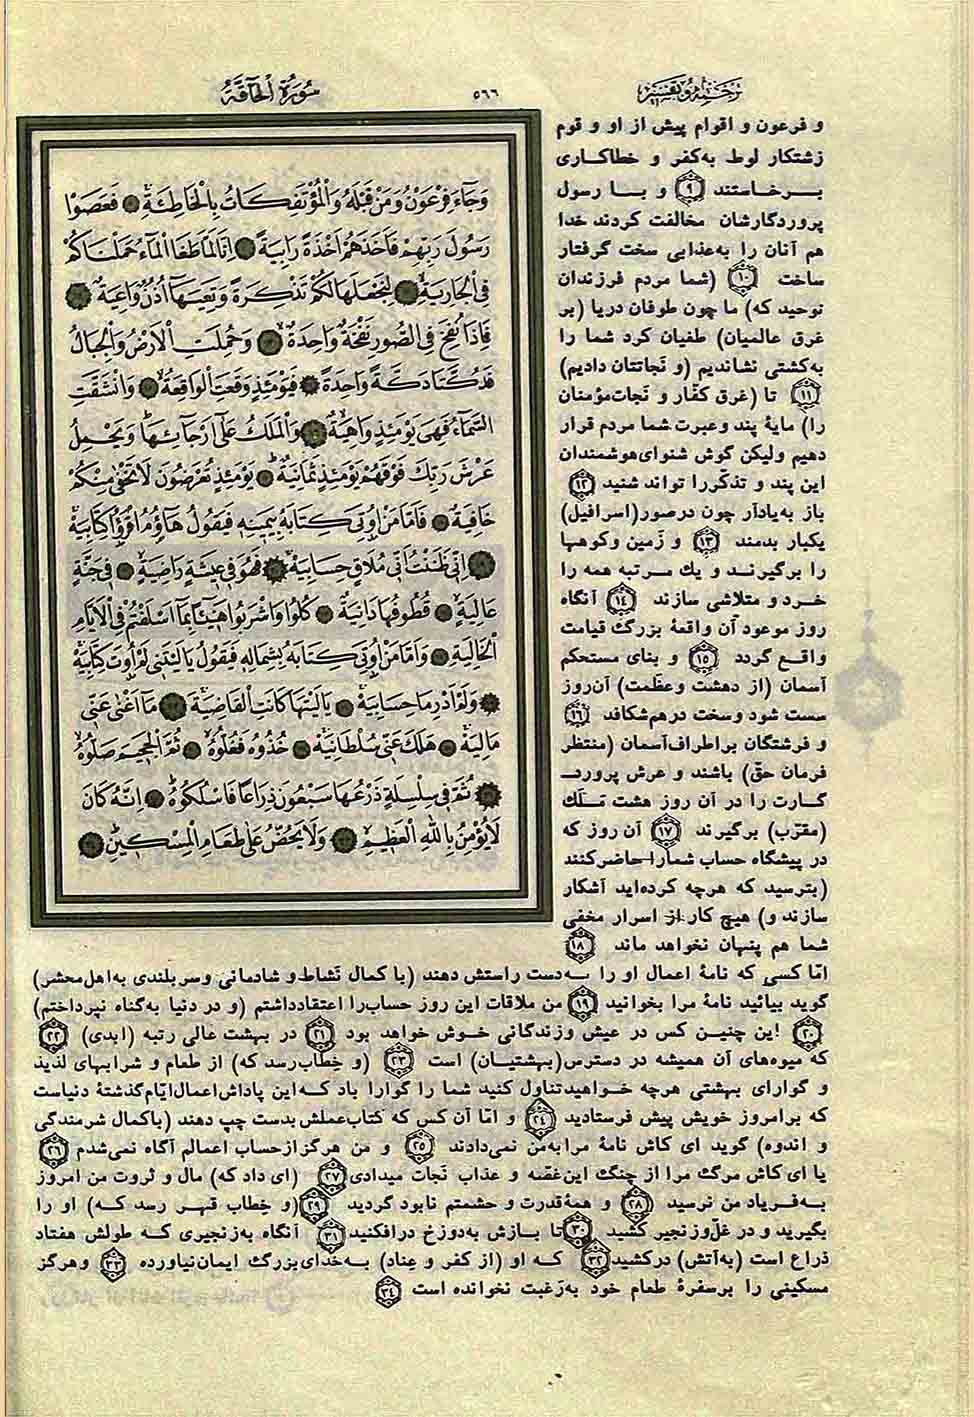 ترجمه و تفسیر
٥٦٦
سُورَةُ الْحَآقَّةُ
وَجَآءَ فِرْعَوْنُ وَمَنْ قَبْلَهُ وَالْمُؤْتَفِكَاتُ بِالْخَاطِئَةِ فَعَصَوْا
رَسُولَ رَبِّهِمْ فَاَخَذَهُمْ اَخْذَةً رَابِيَةً اِنَّا لَمَّا طَغَا الْمَآءُ حَمَلْنَاكُمْ
فِى الْجَارِيَةِ لِنَجْعَلَهَا لَكُمْ تَذْكِرَةً وَتَعِيَهَآ اُذُنٌ وَاعِيَةٌ
فَاِذَا نُفِخَ فِى الصُّورِ نَفْخَةٌ وَاحِدَةٌ وَحُمِلَتِ الْاَرْضُ وَالْجِبَالُ
فَدُكَّتَا دَكَّةً وَاحِدَةً فَيَوْمَئِذٍ وَقَعَتِ الْوَاقِعَةُ وَانْشَقَّتِ
السَّمَآءُ فَهِىَ يَوْمَئِذٍ وَاهِيَةٌ وَالْمَلَكُ عَلٰٓى اَرْجَآئِهَا وَيَحْمِلُ
عَرْشَ رَبِّكَ فَوْقَهُمْ يَوْمَئِذٍ ثَمَانِيَةٌ يَوْمَئِذٍ تُعْرَضُونَ لَا تَخْفٰى مِنْكُمْ
خَافِيَةٌ فَاَمَّا مَنْ اُوتِىَ كِتَابَهُ بِيَمِينِهِ فَيَقُولُ هَآؤُمُ اقْرَؤُا كِتَابِيَهْ
اِنِّى ظَنَنْتُ اَنِّى مُلَاقٍ حِسَابِيَهْ فَهُوَ فِى عِيشَةٍ رَاضِيَةٍ فِى جَنَّةٍ
عَالِيَةٍ قُطُوفُهَا دَانِيَةٌ كُلُوا وَاشْرَبُوا هَنِيٓئًا بِمَآ اَسْلَفْتُمْ فِى الْاَيَّامِ
الْخَالِيَةِ وَاَمَّا مَنْ اُوتِىَ كِتَابَهُ بِشِمَالِهِ فَيَقُولُ يَا لَيْتَنِى لَمْ اُوتَ كِتَابِيَهْ
وَلَمْ اَدْرِ مَا حِسَابِيَهْ يَا لَيْتَهَا كَانَتِ الْقَاضِيَةَ مَآ اَغْنٰى عَنِّى
مَالِيَهْ هَلَكَ عَنِّى سُلْطَانِيَهْ خُذُوهُ فَغُلُّوهُ ثُمَّ الْجَحِيمَ صَلُّوهُ
ثُمَّ فِى سِلْسِلَةٍ ذَرْعُهَا سَبْعُونَ ذِرَاعًا فَاسْلُكُوهُ اِنَّهُ كَانَ
لَا يُؤْمِنُ بِاللّٰهِ الْعَظِيمِ وَلَا يَحُضُّ عَلٰى طَعَامِ الْمِسْكِينِ
و فرعون و اقوام پیش از او و قوم
زشتکار لوط به‌کفر و خطاکاری
برخاستند ٩ و با رسول
پروردگارشان مخالفت کردند خدا
هم آنان را به‌عذابی سخت گرفتار
ساخت ١٠ (شما مردم فرزندان
نوحید که) ما چون طوفان دریا (بر
غرق عالمیان) طغیان کرد شما را
به‌کشتی نشاندیم (و نَجاتتان دادیم)
١١ تا (غرق کفّار و نَجات مؤمنان
را) مایهٔ پند و عبرت شما مردم قرار
دهیم ولیکن گوش شنوای هوشمندان
این پند و تذکّر را تواند شنید ١٢
باز به‌یادآر چون در صور (اسرافیل)
یکبار بدمند ١٣ و زمین و کوهها
را برگیرند و یك مرتبه همه را
خرد و متلاشی سازند ١٤ آنگاه
روز موعود آن واقعهٔ بزرگ قیامت
واقع گردد ١٥ و بنای مستحکم
آسمان (از دهشت و عظمت) آن‌روز
سست شود و سخت درهم شکافد ١٦
و فرشتگان بر اطراف آسمان (منتظر
فرمان حقّ) باشند و عرش پرورد
گارت را در آن روز هشت مَلَك
(مقرّب) برگیرند ١٧ آن روز که
در پیشگاه حساب شما را حاضر کنند
(بترسید که هرچه کرده‌اید آشکار
سازند و) هیچ کار از اسرار مخفی
شما هم پنهان نخواهد ماند ١٨
امّا کسی که نامهٔ اعمال او را به‌دست راستش دهند (با کمال نَشاط و شادمانی و سربلندی به‌اهل محشر)
گوید بیائید نامهٔ مرا بخوانید ١٩ من ملاقات این روز حساب را اعتقاد داشتم (و در دنیا به‌گناه نپرداختم)
٢٠ این چنین کس در عیش و زندگانی خوش خواهد بود ٢١ در بهشت عالی رتبه (ابدی) ٢٢
که میوه‌های آن همیشه در دسترس (بهشتیان) است ٢٣ (و خِطاب رسد که) از طعام و شرابهای لذیذ
و گوارای بهشتی هرچه خواهید تناول کنید شما را گوارا باد که این پاداش اعمال ایّام گذشتهٔ دنیاست
که برای امروز خویش پیش فرستادید ٢٤ و امّا آن کس که کتاب عملش بدست چپ دهند (با کمال شرمندگی
و اندوه) گوید ای کاش نامهٔ مرا به‌من نمی‌دادند ٢٥ و من هرگز از حساب اعمالم آگاه نمی‌شدم ٢٦
یا ای کاش مرگ مرا از چنگ این غصّه و عذاب نَجات میدادی ٢٧ (ای داد که) مال و ثروت من امروز
به‌فریاد من نرسید ٢٨ و همهٔ قدرت و حشمتم نابود گردید ٢٩ (و خِطاب قهر رسد که) او را
بگیرید و در غلّ و زنجیر کشید ٣٠ تا بازش به‌دوزخ درافکنید ٣١ آنگاه به‌زنجیری که طولش هفتاد
ذراع است (به‌آتش) درکشید ٣٢ که او (از کفر و عِناد) به‌خدای بزرگ ایمان نیاورده ٣٣ و هرگز
مسکینی را بر سفرهٔ طعام خود به‌رغبت نخوانده است ٣٤